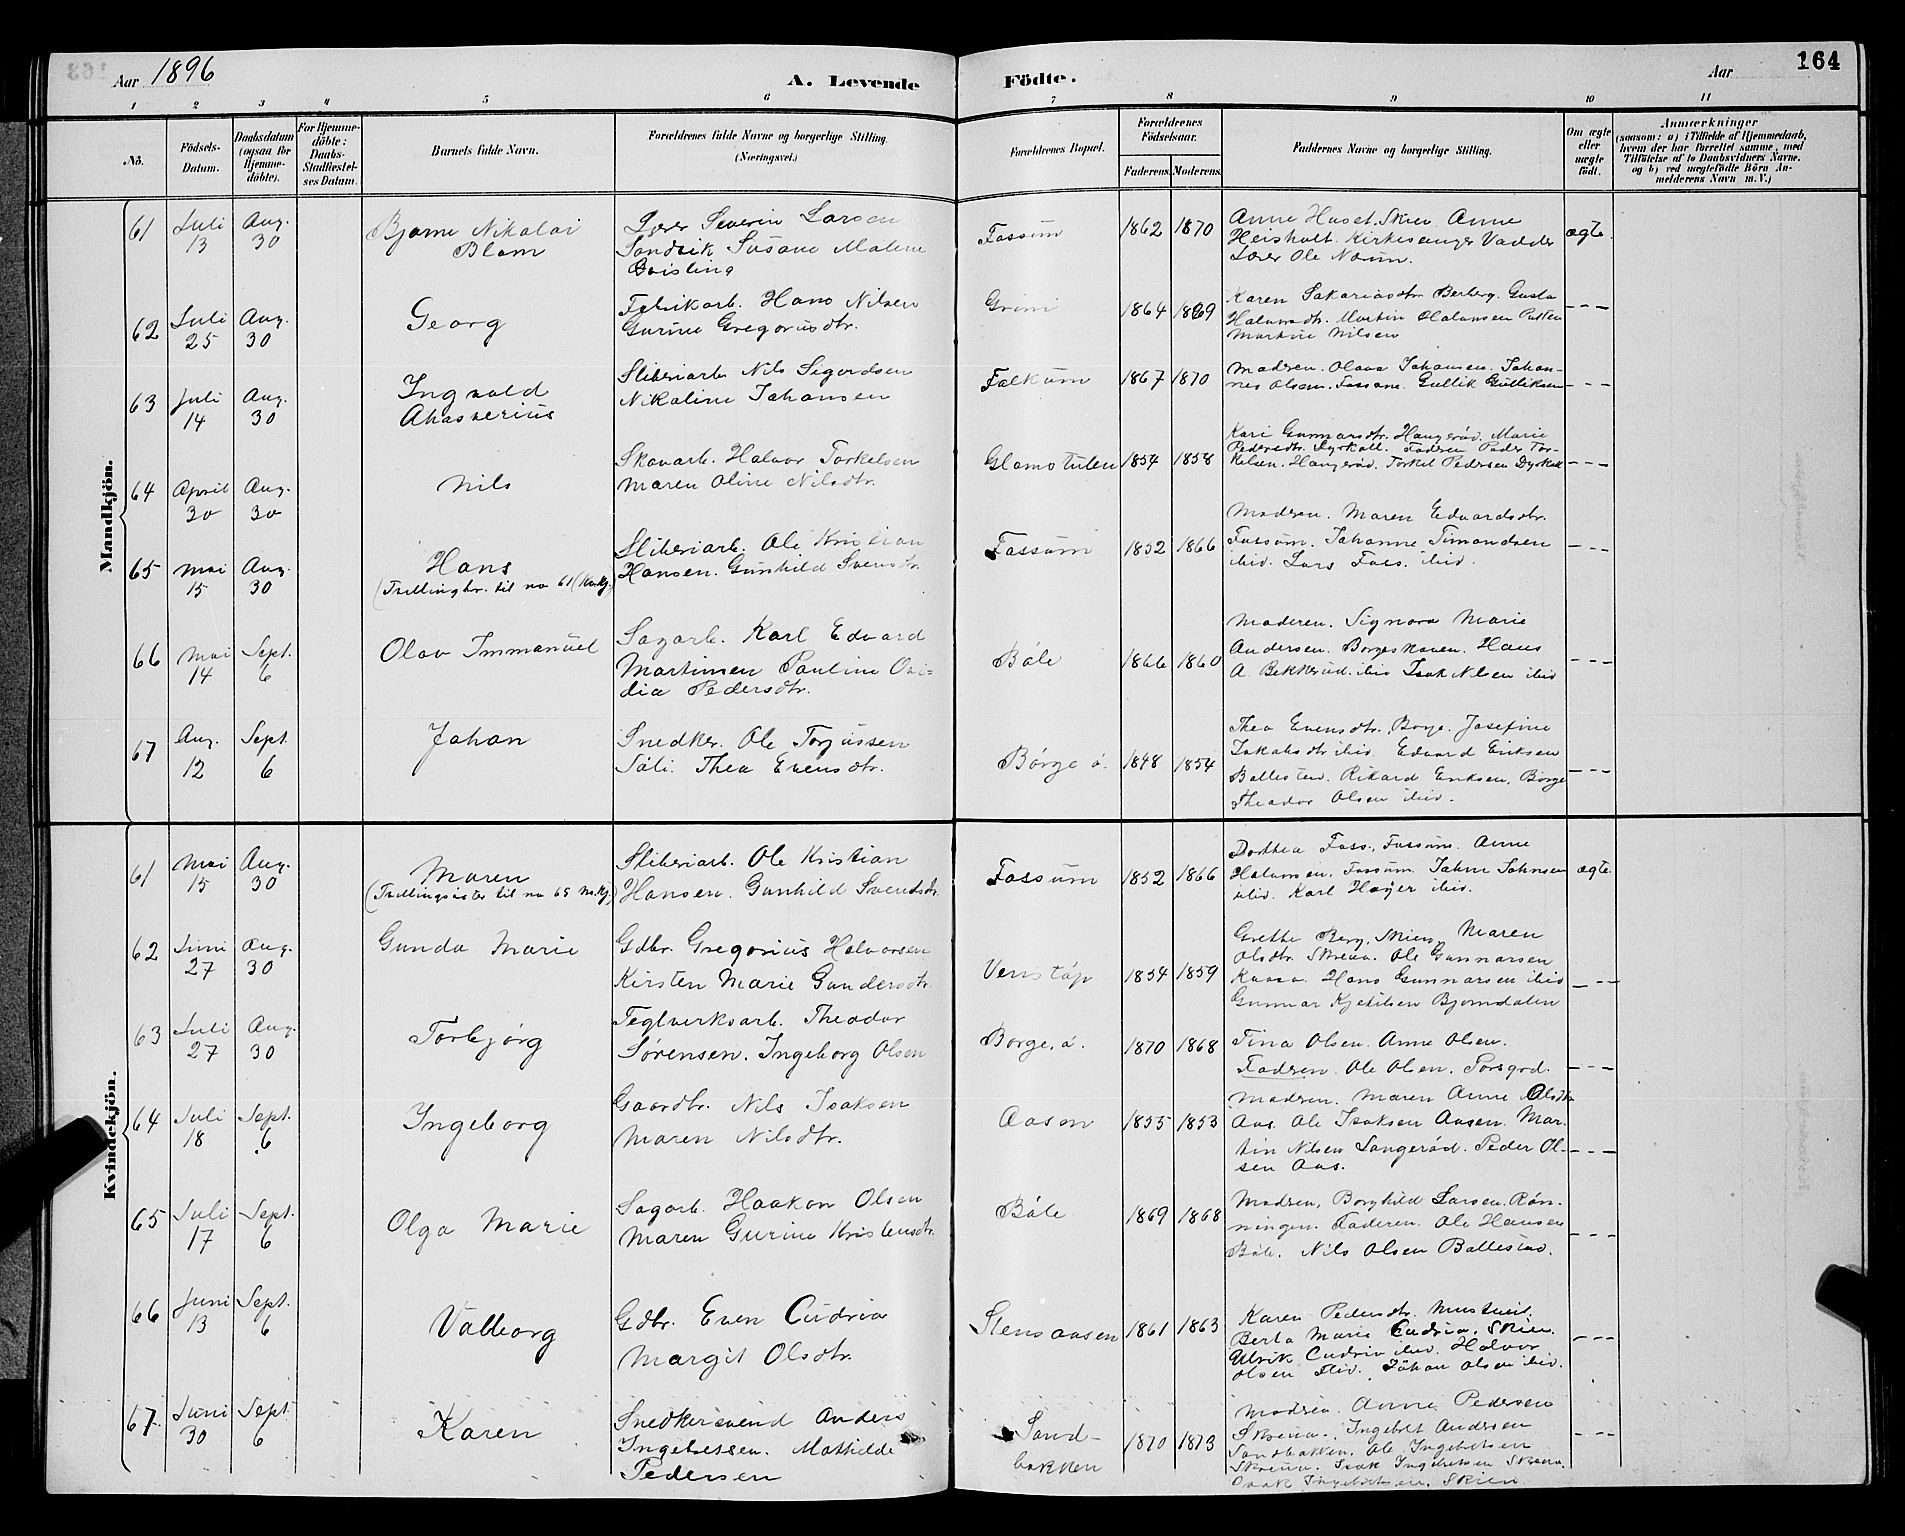 Aar 1896
A. Levende Fødte.
Aar
164
1 2 3 4 5 6 7 8 9 10 11
No.
Födsels-
Datum.
Daabsdatum
(ogsaa for
Hjemme-
döbte).
For Hjemme-
döbte:
Daabs-
Stadfæstel-
ses Datum.
Barnets fulde Navn.
Forældrenes fulde Navne og borgerlige Stilling.
(Næringsvei.)
Forældrenes Bopæl.
Forældrenes
Födselsaar.
Faderens. Moderens.
Faddernes Navne og borgerlige Stilling.
Om ægte
eller
uægte
født.
Anmærkninger
(saasom: a) i Tilfælde af Hjemmedaab,
hvem der har forrettet samme, med
Tilföielse af to Daabsvidners Navne,
og b) ved uægtefödte Börn An-
melderens Navn m. V.)
Mandkjön.
61 Juli 13 Aug. 30
Bjarne Nikolai
Blom
Lærer Severin Larsen
Sandvik Susane Malene
Qvisling
Fossum 1862 1870
Anne Huset. Skien Anne
Heisholt. Kirkesanger Vadder
Lærer Ole Næsn.
ægte
62 Juli 25 Aug. 30
Georg
Fabrikarb. Hans Nilsen
Gurine Gregoriusdtr.
Grini 1864 1869
Karen Sakariasdtr. Berberg. Gusta
Halvorsdtr. Martin Olavsen
Martin Nilsen
63 Juli 14 Aug. 30
Ingvald
Ahasverius
Sliberiarb. Nils Sigurdsen
Nikoline Johansen
Falkum 1867 1870
Moderen. Olava Johansen. Johan-
nes Olsen. Fossum. Gullik Gulliksen
64 April 30 Aug. 30
Nils
Skovarb. Halvor Torkelsen
Maren Oline Nilsdtr.
Glamotulen 1854 1858
Kari Gunnarsdtr. Haugerød. Marie
Pedersdtr. Dyrkoll. Faderen Peder Tor-
kelsen. Haugerød. Torkel Pedersen Dyrkoll
65 Mai 15 Aug. 30
Hans
(Trillingbr. til no 61 (Kv.kj.)
Sliberiarb. Ole Kristian
Hansen. Gunhild Svensdtr.
Fossum 1852 1866
Moderen. Maren Edvardsdtr.
Fossum. Johanne Simondsen
ibid. Lars Foss. ibid.
66 Mai 14 Sept. 6
Olav Immanuel
Sagarb. Karl Edvard
Martinsen Pauline Ovi-
dia Pedersdtr.
Bøle 1866 1860
Moderen. Signora Marie
Andersen. Borgeskoven. Hans
A. Bekkerud. ibid Isak Nilsen ibid
67 Aug. 12 Sept. 6
Johan
Snedker. Ole Torjussen
Søli. Thea Evensdtr.
Børge ø. 1848 1854
Thea Evensdtr. Borge. Josefine
Jakobsdtr ibid. Edvard Eriksen
Ballestad. Rikard Eriksen, Børge
Theodor Olsen ibid.
Kvindekjön.
61 Mai 15 Aug. 30
Maren
(Trillingsøster til no 65 M.kj.)
Sliberiarb. Ole Kristian
Hansen. Gunhild Svendsdtr.
Fossum 1852 1866
Dorthea Foss., Fossum. Anne
Halvorsen, Fossum. Johne Johnsen
ibid. Karl Høyer ibid.
ægte.
62 Juni 27 Aug. 30
Gunda Marie
Gdbr. Gregorius Halvorsen
Kirsten Marie Gundersdtr.
Venstøp 1854 1859
Grethe Berg, Skien, Maren
Olsdtr. Skreua. Ole Gunnarsen
Kaasa. Hans Gunnarsen ibid
Gunnar Kjetilsen Bjorndalen
63 Juli 27 Aug. 30
Torbjørg
Teglverksarb. Theodor
Sørensen. Ingeborg Olsen
Borge. ø. 1870 1868
Tina Olsen. Anne Olsen.
Faderen. Ole Olsen. Porsgrd.
64 Juli 18 Sept. 6
Ingeborg
Gaardbr. Nils Isaksen
Maren Nilsdtr.
Aasen 1855 1853
Moderen. Maren Anne Olsdtr
Aas. Ole Isaksen Aasen. Mar-
tin Nilsen Langerød. Peder Ol-
sen Aas.
65 Juli 17 Sept. 6
Olga Marie
Sagarb. Haakon Olsen
Maren Gurine Kristensdtr.
Bøle 1869 1868
Modren, Borghild Larsen. Røn-
ningen. Faderen. Ole Hansen
Bøle. Nils Olsen Ballestad.
66 Juni 13 Sept. 6
Valborg
Gdbr. Even Cudrio
Margit Olsdtr.
Stensaasen 1861 1863
Karen Pedersdtr. Mustveit.
Berta Marie Cudrio. Skien.
Ulrik Cudrio ibid. Halvor
Olsen ibid. Johan Olsen ibid.
67 Juni 30 Sept. 6
Karen
Snedkersvend Anders
Ingebretsen. Mathilde
Pedersen
Sand-
bakken 1870 1873
Modren. Anne Pedersen
Skreua. Ingebret Andersen
Sandbakken. Ole Ingebretsen
Skreua. Isak Ingebretsen Skreua.
Isak Ingebretsen, Skien